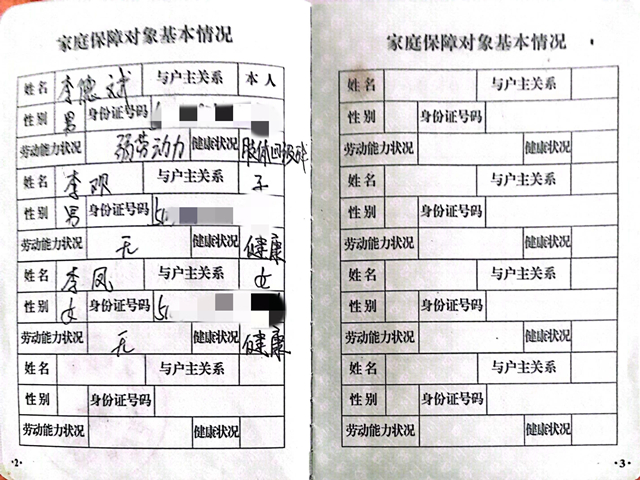 家庭保障对象基本情况
姓名 李德斌 与户主关系 本人
性别 男 身份证号码
劳动能力状况 弱劳动力 健康状况 肢体四级残
姓名 李欢 与户主关系 子
性别 男 身份证号码 51
劳动能力状况 无 健康状况 健康
姓名 李凤 与户主关系 女
性别 女 身份证号码 51
劳动能力状况 无 健康状况 健康
姓名 与户主关系
性别 身份证号码
劳动能力状况 健康状况
·2·
家庭保障对象基本情况
姓名 与户主关系
性别 身份证号码
劳动能力状况 健康状况
姓名 与户主关系
性别 身份证号码
劳动能力状况 健康状况
姓名 与户主关系
性别 身份证号码
劳动能力状况 健康状况
姓名 与户主关系
性别 身份证号码
劳动能力状况 健康状况
·3·